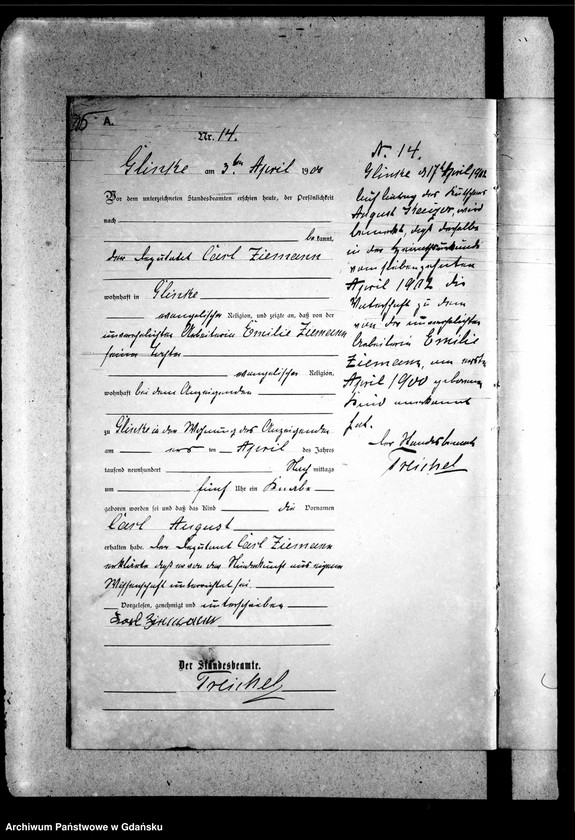 A.
Nr. 14.
Glinke am 3ten April 1900
Vor dem unterzeichneten Standesbeamten erschien heute, der Persönlichkeit
nach
be kannt,
der Deputat Carl Ziemann
wohnhaft in Glinke
evangelischer Religion, und zeigte an, daß von der
unverehelichten Arbeiterin Emilie Ziemann
seiner Tochter
evangelischer Religion,
wohnhaft bei dem Anzeigenden
zu Glinke in der Wohnung des Anzeigenden
am ersten April des Jahres
tausend neunhundert Nachmittags
um fünf Uhr ein Knabe
geboren worden sei und daß das Kind die Vornamen
Carl August
erhalten habe. Der Deputant Carl Ziemann
erklärte daß er von der Niederkunft aus eigener
Wissenschaft unterrichtet sei.
Vorgelesen, genehmigt und unterschrieben
Karl Ziemann
Der Standesbeamte.
Treichel
N. 14.
Glinke d 17t April 1902
Auf Antrag des
August wird
bemerkt, daß derselbe
in der
vom siebenzehnten
April 1902 die
Vaterschaft zu dem
von der unverehelichten
Arbeiterin Emilie
Ziemann, am ersten
April 1900 geborenen
Kind anerkannt
hat.
Der Standesbeamte
Treichel
Archiwum Państwowe w Gdańsku